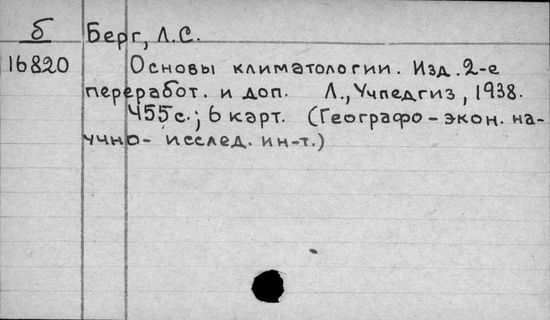 б Берг, Л.С.
16820 Основы климатологии. Изд. 2-е
переработ. и доп. Л., Учпедгиз, 1938.
455 с.; 6 карт. (Географо-экон. на-
учно- исслед. ин-т.)